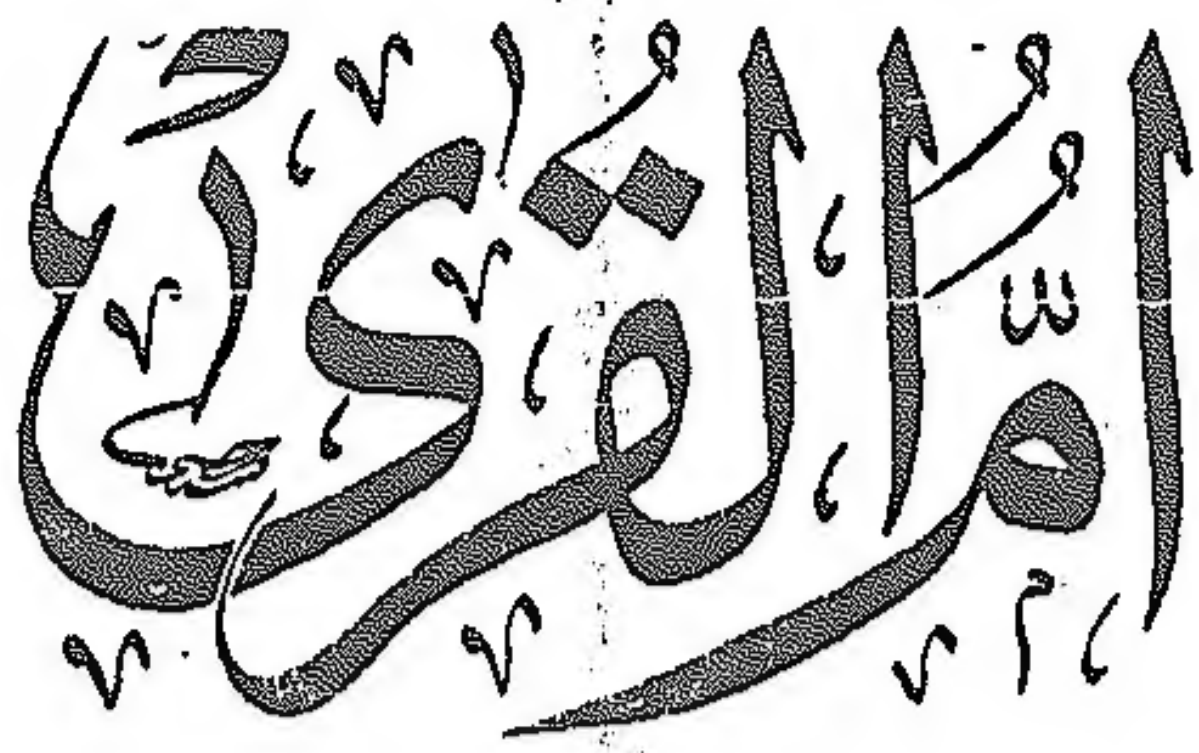 اُمُّ القُرى